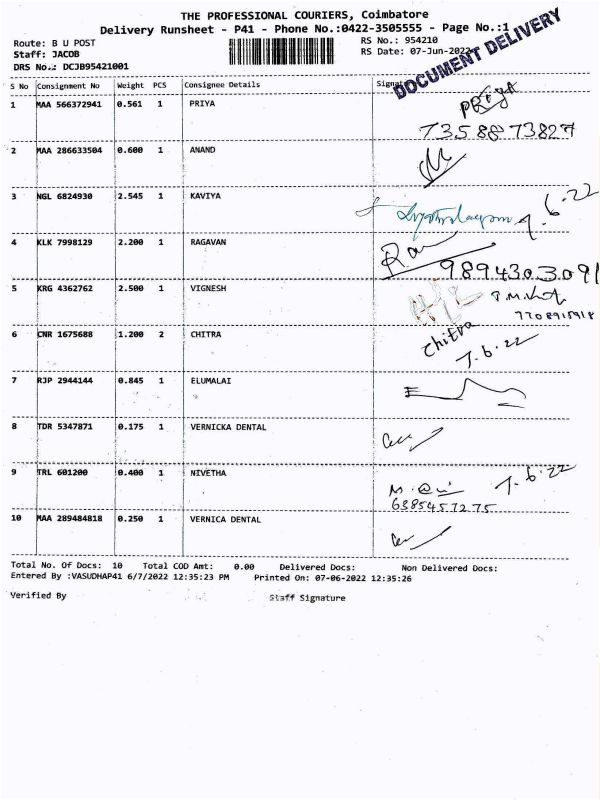 THE PROFESSIONAL COURIERS, Coimbatore
Delivery Runsheet - P41 - Phone No.:0422-3505555 - Page No.:1
Route: B U POST RS No.: 954210
Staff: JACOB RS Date: 07-Jun-2022
DRS No.: DCJB95421001
DOCUMENT DELIVERY
S No Consignment No Weight PCS Consignee Details
1 MAA 566372941 0.561 1 PRIYA PRIYA
7358873827
2 MAA 286633504 0.600 1 ANAND
3 NGL 6824930 2.545 1 KAVIYA 7.6.22
4 KLK 7998129 2.200 1 RAGAVAN
9894303091
5 KRG 4362762 2.500 1 VIGNESH
7708915918
6 CNR 1675688 1.200 2 CHITRA Chitra
7.6.22
7 RJP 2944144 0.845 1 ELUMALAI
8 TDR 5347871 0.175 1 VERNICKA DENTAL
9 TRL 601200 0.400 1 NIVETHA 7.6.22
6385457275
10 MAA 289484818 0.250 1 VERNICA DENTAL
Total No. Of Docs: 10 Total COD Amt: 0.00 Delivered Docs: Non Delivered Docs:
Entered By :VASUDHAP41 6/7/2022 12:35:23 PM Printed On: 07-06-2022 12:35:26
Verified By Staff Signature